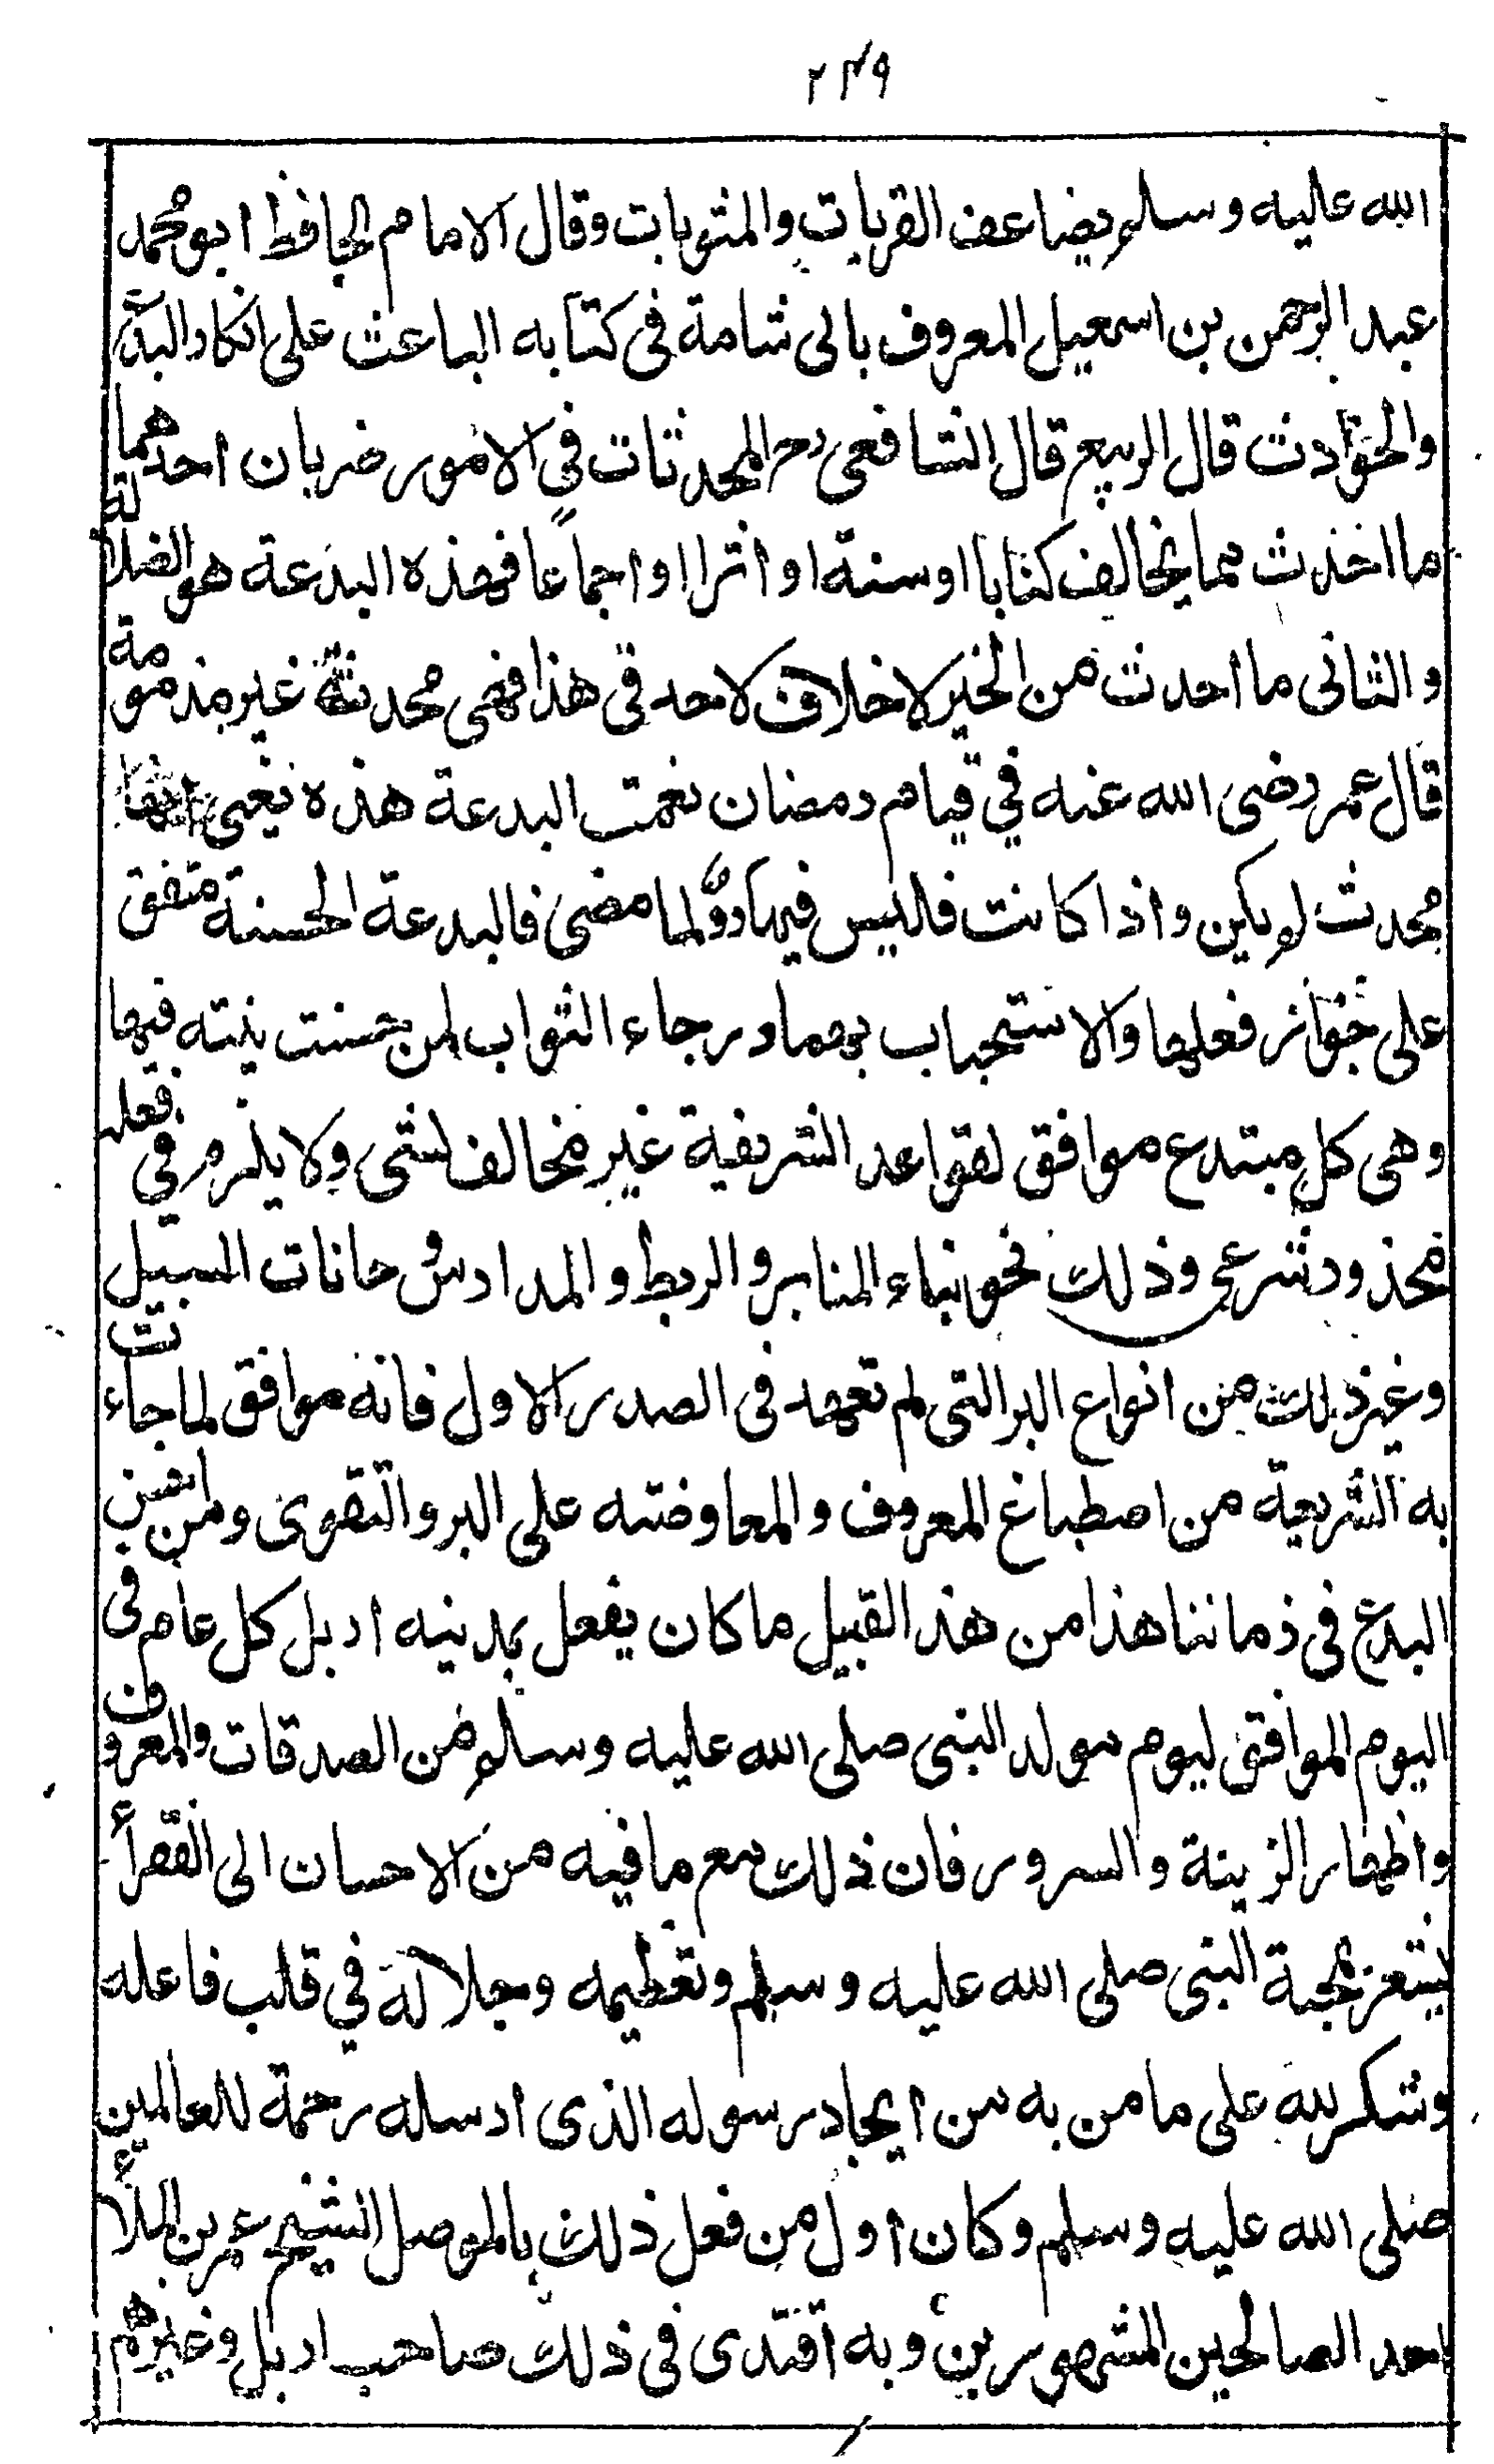 ٢٣٩
الله عليه وسلم يضاعف القربات والمثوبات وقال الامام الحافظ ابو محمد
عبد الرحمن بن اسمعيل المعروف بابى شامة فى كتابه الباعث على انكار البدع
والحوادث قال الربيع قال الشافعى رح المحدثات فى الامور ضربان احدهما
ما احدث مما يخالف كتابا او سنة او اثرا او اجماعا فهذه البدعة هو الضلالة
والثانى ما احدث من الخير لا خلاف لاحد فى هذا فهى محدثة غير مذمومة
قال عمر رضى الله عنه في قيام رمضان نعمت البدعة هذه يعنى انها
محدث لم يكن واذا كانت فليس فيها ردٌّ لما مضى فالبدعة الحسنة متفق
على جواز فعلها والاستحباب بهما ورجاء الثواب لمن حسنت نيته فيها
وهى كل مبتدع موافق لقواعد الشريفية غير مخالف لشى ولا يلزم في فعله
محذور شرعى وذلك نحو بناء المنابر والربط والمدارس و خانات السبيل
وغير ذلك من انواع البر التى لم تعهد فى الصدر الاول فانه موافق لما جاءت
به الشريعة من اصطباغ المعروف والمعاوضته على البر والتقوى ومن احسن
البدع فى زماننا هذا من هذ القبيل ما كان يفعل بمدينه اربل كل عام فى
اليوم الموافق ليوم مولد النبى صلى الله عليه وسلم من الصدقات والمعروف
واظهار الزينة والسرور فان ذلك مع ما فيه من الاحسان الى الفقرأ
يشعر بمحبة النبى صلى الله عليه وسلم وتعظيمه وجلالة في قلب فاعله
وشكر لله على ما من به من ايجاد رسوله الذى ارسله رحمة للعالمين
صلى الله عليه وسلم وكان اول من فعل ذلك بالموصل الشيخ عمر بن الملأ
احد الصالحين المشهورين وبه اقتدى فى ذلك صاحب اربل وغيرهم